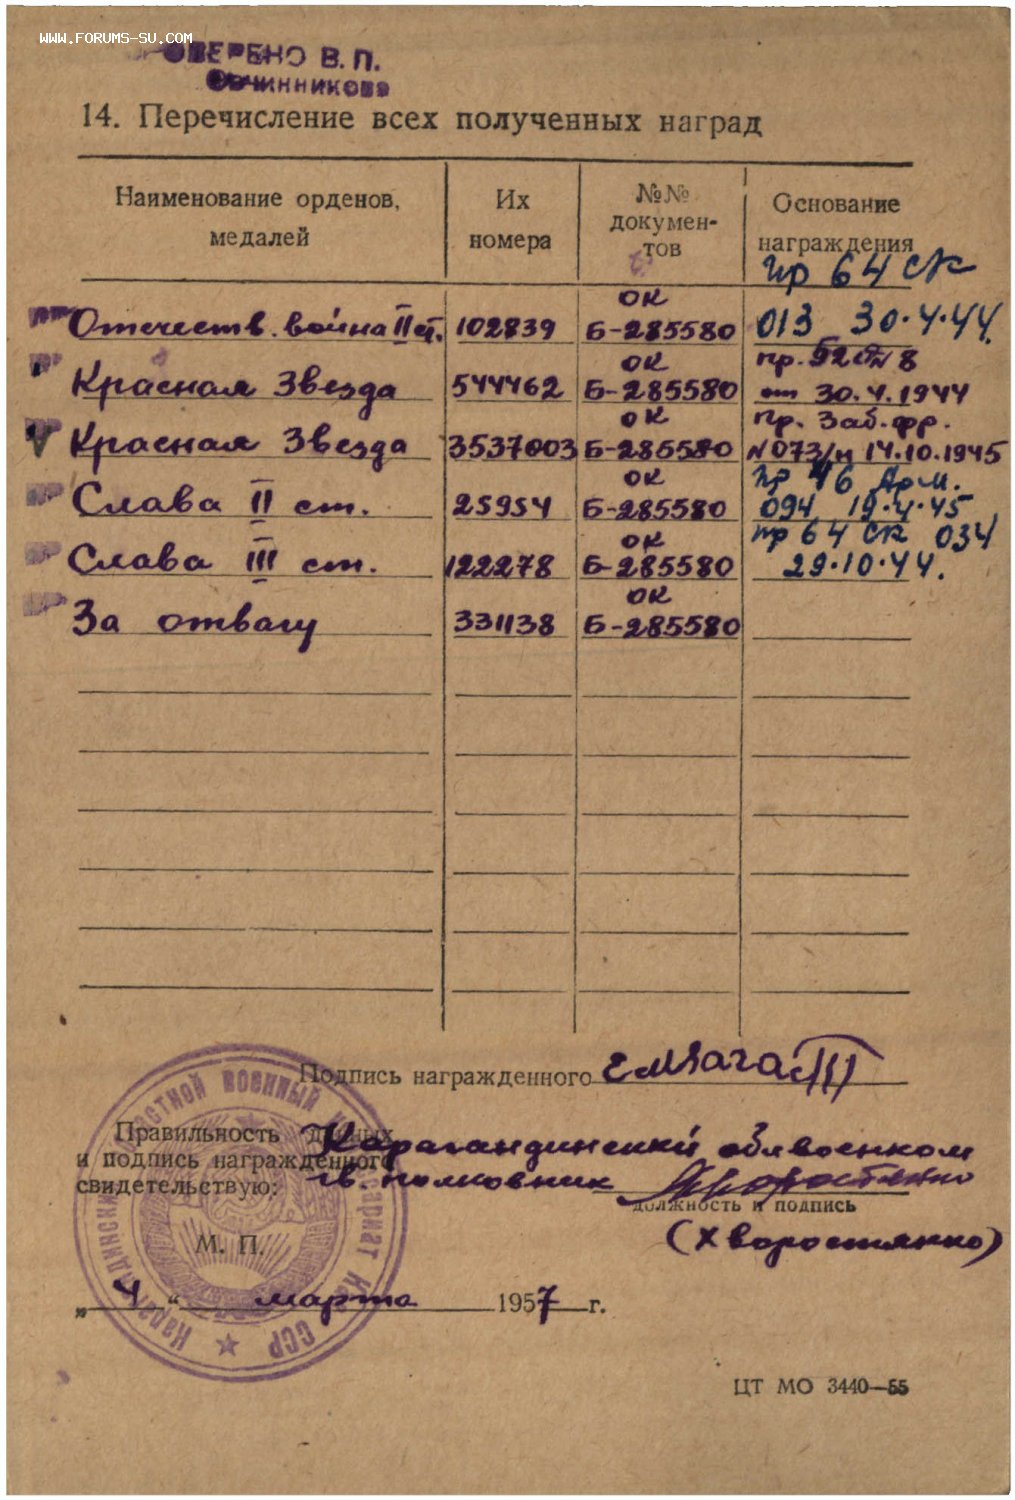 WWW.FORUMS-SU.COM
ПРОВЕРЕНО В.П.
Овчинникова
14. Перечисление всех полученных наград
Наименование орденов, медалей
Их номера
№№ документов
Основание награждения
Отечеств. война II ст. 102839 ОК Б-285580 Пр 64 СК 013 30.4.44.
Красная Звезда 544462 ОК Б-285580 пр. 92 № 8 от 30.4.1944
Красная Звезда 3537003 ОК Б-285580 Пр. Заб. фр. N073/н 14.10.1945
Слава II ст. 25954 ОК Б-285580 Пр 46 Арм. 094 19.4.45
Слава III ст. 122278 ОК Б-285580 пр 64 СК 034 29.10.44.
За отвагу 331138 ОК Б-285580
Подпись награжденного
Правильность данных
и подпись награжденного
свидетельствую:
Карагандинский облвоенком
гв. полковник
должность и подпись
(Хворостянко)
М. П.
„ 4 “ марта 1957 г.
Карагандинский областной военный комиссариат КазССР
ЦТ МО 3440—55